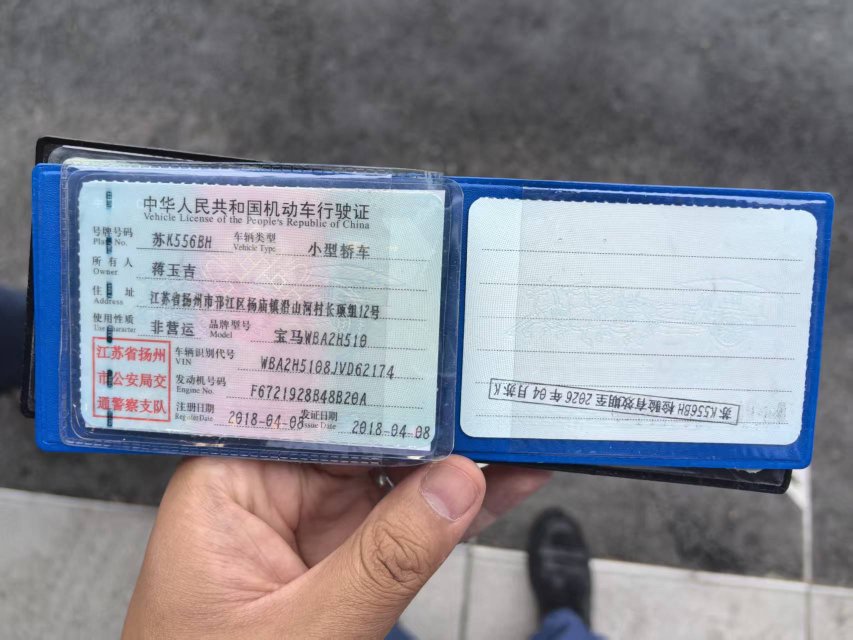 中华人民共和国机动车行驶证
Vehicle License of the People's Republic of China
号牌号码 苏K556BH 车辆类型 小型轿车
Plate No. Vehicle Type
所有人 蒋玉吉
Owner
住址 江苏省扬州市邗江区杨庙镇澄山河村长琪组12号
Address
使用性质 非营运 品牌型号 宝马WBA2H510
Use Character Model
江苏省扬州
市公安局交
通警察支队
车辆识别代号 WBA2H5108JVD62174
VIN
发动机号码 F6721928B48B20A
Engine No.
注册日期 2018-04-08 发证日期 2018-04-08
Register Date Issue Date
苏K556BH 检验有效期至2026年04月苏K